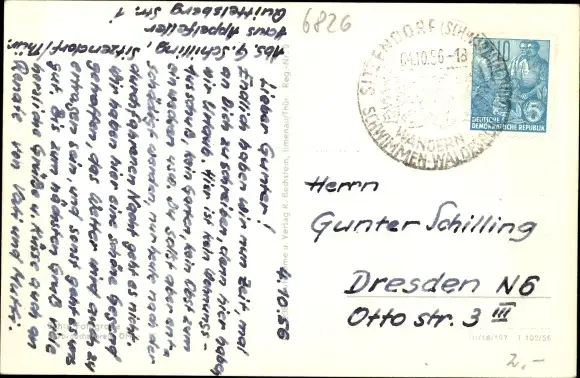 Abs. G. Schilling, Sitzendorf/Thür.
Haus Appelfeller
Quittelsberg Str. 1
4.10.56
Lieber Gunter!
Endlich haben wir nun Zeit, mal
an Dich zu schreiben, denn hier haben
wir Urlaub. Hier ist kein Gemüse-
kein Garten, kein Obst zum
einwecken usw. Du sollst aber ent-
schädigt werden, nur heute nach der
durchfahrenen Nacht geht es nicht.
Wir haben hier eine schöne Gegend
getroffen, das Wetter wird auch zu
ertragen sein und sonst geht es uns
gut. Bis zum nächsten Gruß viele
herzliche Grüße u. Küsse auch an
Renate von Vati und Mutti.
6826
SITZENDORF (SCHWARZATAL)
04.10.56-18
WANDERN
SCHWIMMEN-WALD
10
5
DEUTSCHE
DEMOKRATISCHE REPUBLIK
Herrn
Gunter Schilling
Dresden N6
Otto str. 3 III
u. Verlag R. Bechstein, Ilmenau/Thür. Reg.-Nr.
T 100/56
2,-